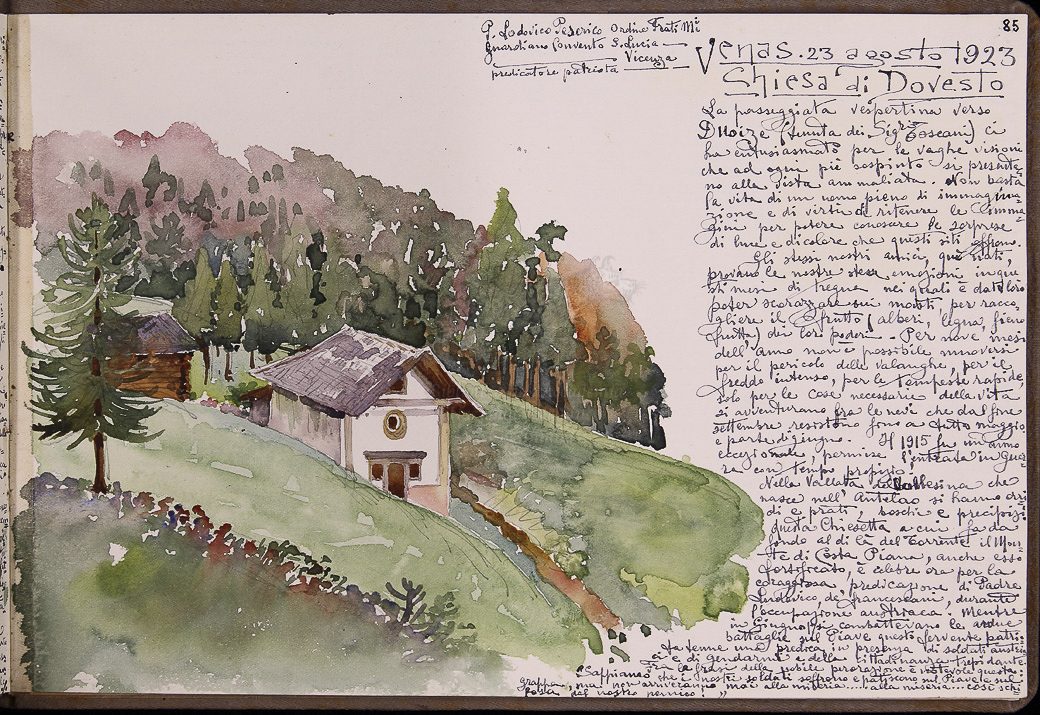 85
P. Lodovico Peserico Ordine Frati Mi
Guardiano Convento S. Lucia
Vicenza
predicatore patriota
Venas. 23 agosto 1923
Chiesa di Dovesto
La passeggiata vespertina verso
(tenuta dei Sigri Toscani) ci
ha entusiasmato per le vaghe visioni
che ad ogni piè sospinto si presenta-
no alla vista ammaliata. Non basta
la vita di un uomo pieno di immagina-
zione e di virtù di ritenere le imma-
gini per potere conoscere le sorprese
di luce e di colore che questi siti offrono.
Gli stessi nostri amici, qui nati,
provano le nostre stesse emozioni in que-
sti mesi di tregua nei quali è dato loro
poter scorazzare sui monti per racco-
gliere il frutto (alberi, legna, fieno
frutta) dei loro poderi. Per nove mesi
dell'anno non è possibile muoversi
per il pericolo delle valanghe, per il
freddo intenso, per le tempeste rapide,
solo per le cose necessarie della vita
si avventurano fra le nevi che dal fine
settembre resistono fino a tutto maggio
e parte di giugno. Il 1915 fu un anno
eccezionale, permise l'entrata in guer-
ra con tempo propizio.
Nella Vallata che
nasce nell'Antelao si hanno
di e prati, boschi e precipizi
questa Chiesetta a cui fa da
fondo al di là del torrente il Mon-
te di Costa Piana, anche esso
fortificato, è celebre ora per la
coraggiosa predicazione di Padre
Ludovico dei francescani, durante
l'occupazione austriaca. Mentre
in Giugno si combattevano le ardue
battaglie sul Piave questo fervente patri-
ota tenne una predica in presenza di soldati austri-
aci e di gendarmi e della cittadinanza trepidante
Tra le frasi della nobile perorazione è notevole questa:
"Sappiamo che i nostri soldati soffrono e patiscono sul Piave e sul
grappa, ma non arriveranno mai alla miseria.... alla miseria... così schi
fosa del nostro nemico!"